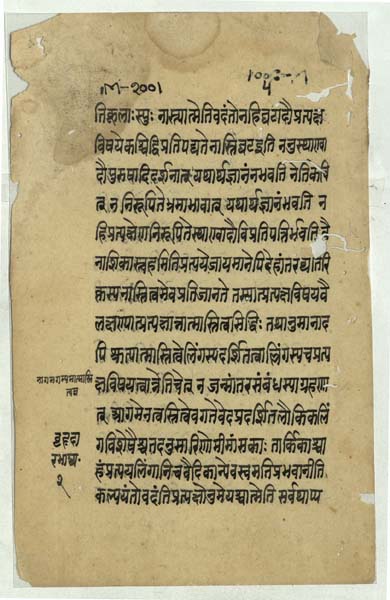 ण्म-२००१
५
तिकूलाः स्युः नास्त्यात्मेति वदंतो न हि घटादौ प्रत्यक्ष
विषये कश्चिद्विप्रतिपद्यते नास्ति घट इति ननु स्थाण्वा
दौ पुरुषादिदर्शनात् यथार्थज्ञानं न भवति नेति केचि
त् न निरूपितेभ्रमाभावात् यथार्थज्ञानं भवति न
हि प्रत्यक्षेण निरूपिते स्थाण्वादौ विप्रतिपत्तिर्भवति वै
नाशिकास्त्वहमिति प्रत्यये जायमानेपि देहांतरव्यतिरि
क्तस्य नास्तित्वमेव प्रतिजानते तस्मात्प्रत्यक्षविषयवै
लक्षण्यात्प्रत्यक्षान्नात्मास्तित्वसिद्धिः तथानुमानाद
पि श्रुत्यात्मास्तित्वे लिंगस्य दर्शितत्वाल्लिंगस्य च प्रत्य
क्षविषयत्वान्नेति चेन्न न जन्मांतरसंबंधस्याग्रहणा
त् आगमेन त्वस्तित्वेवगते वेदप्रदर्शितलौकिकलिं
गविशेषैश्च तदनुसारिणो मीमांसकाः तार्किकाश्चा
हंप्रत्ययलिंगानि च वैदिकान्येव स्वमतिप्रभवानीति
कल्पयंतो वदंति प्रत्यक्षोनुमेयश्चात्मेति सर्वथाप्य
बृहदा
रभाष्य
२